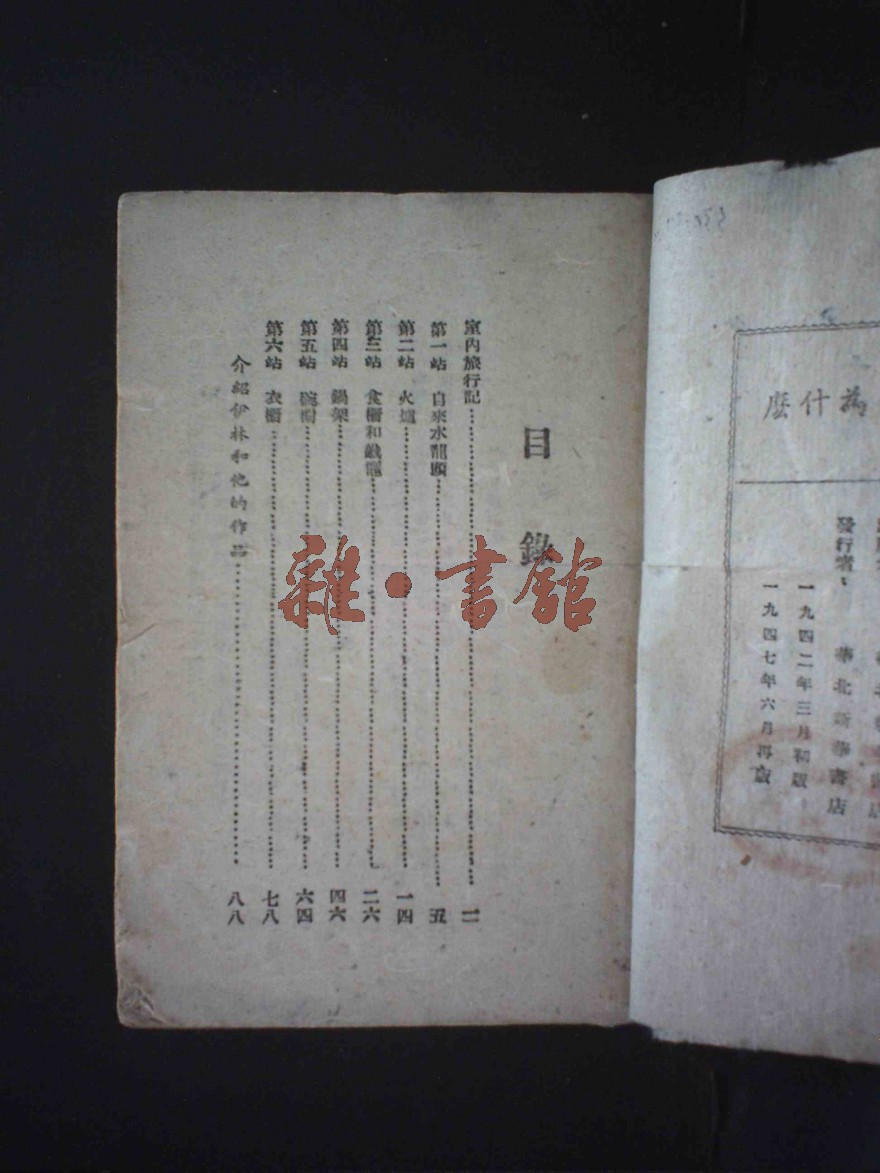 為什麼
發行者：華北新華書店
一九四二年三月初版
一九四七年六月再版
目錄
室內旅行記 一
第一站 自來水龍頭 五
第二站 火爐 一四
第三站 食櫥和 二六
第四站 鍋架 四六
第五站 碗櫥 六四
第六站 衣櫥 七八
介紹伊林和他的作品 八八
雜·書館